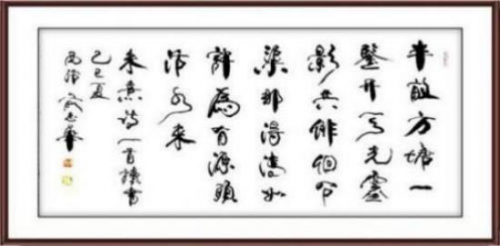 半畝方塘一
鑒开天光雲
影共徘徊问
渠那得清如
許為有源頭
活水来
朱熹诗一首書
己巳夏